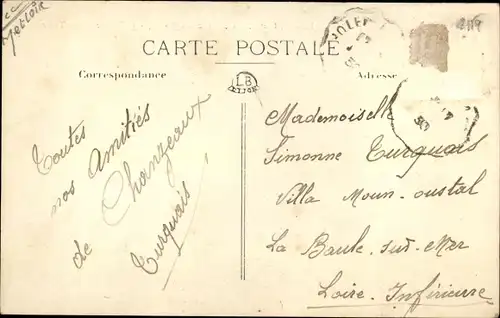 M et Loire
CARTE POSTALE
Correspondance
Adresse
LB
DIJON
Toutes
nos Amitiés
de Chanzeaux
Turquais
Mademoiselle
Simonne Turquais
Villa Moun-oustal
La Baule-sur-Mer
Loire-Inférieure